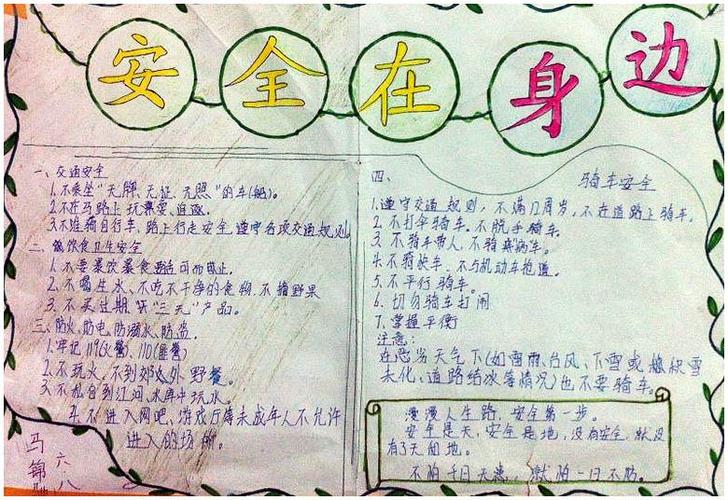 安全在身边
一、交通安全
1.不乘坐"无牌、无证、无照"的车(船)。
2.不在马路上玩耍、追逐。
3.不准骑自行车,路上行走安全,遵守各项交通规则。
二、饮食卫生安全
1.不要暴饮暴食适可而止。
2.不喝生水、不吃不干净的食物,不摘野果
3.不买过期"三无"产品。
三、防火、防电、防溺水、防盗。
1.牢记119(火警)、110(匪警)
2.不玩火,不到郊外野餐。
3.不私自到江河水库中玩水。
4.不进入网吧,游戏厅等未成年人不允许
进入的场所。
马锦
六八
四、骑车安全
1.遵守交通规则,不满12周岁,不在道路上骑车。
2.不打伞骑车.不脱手骑车.
3.不骑车带人,不骑病车。
4.不骑快车.不与机动车抢道。
5.不平行骑车。
6.切勿骑车打闹
7.掌握平衡
注意:
在恶劣天气下(如雷雨、台风、下雪或积雪
未化、道路结冰等情况)也不要骑车。
漫漫人生路,安全第一步。
安全是天,安全是地,没有安全,就没
有了天和地。
不怕千日无患,就怕一日不防。